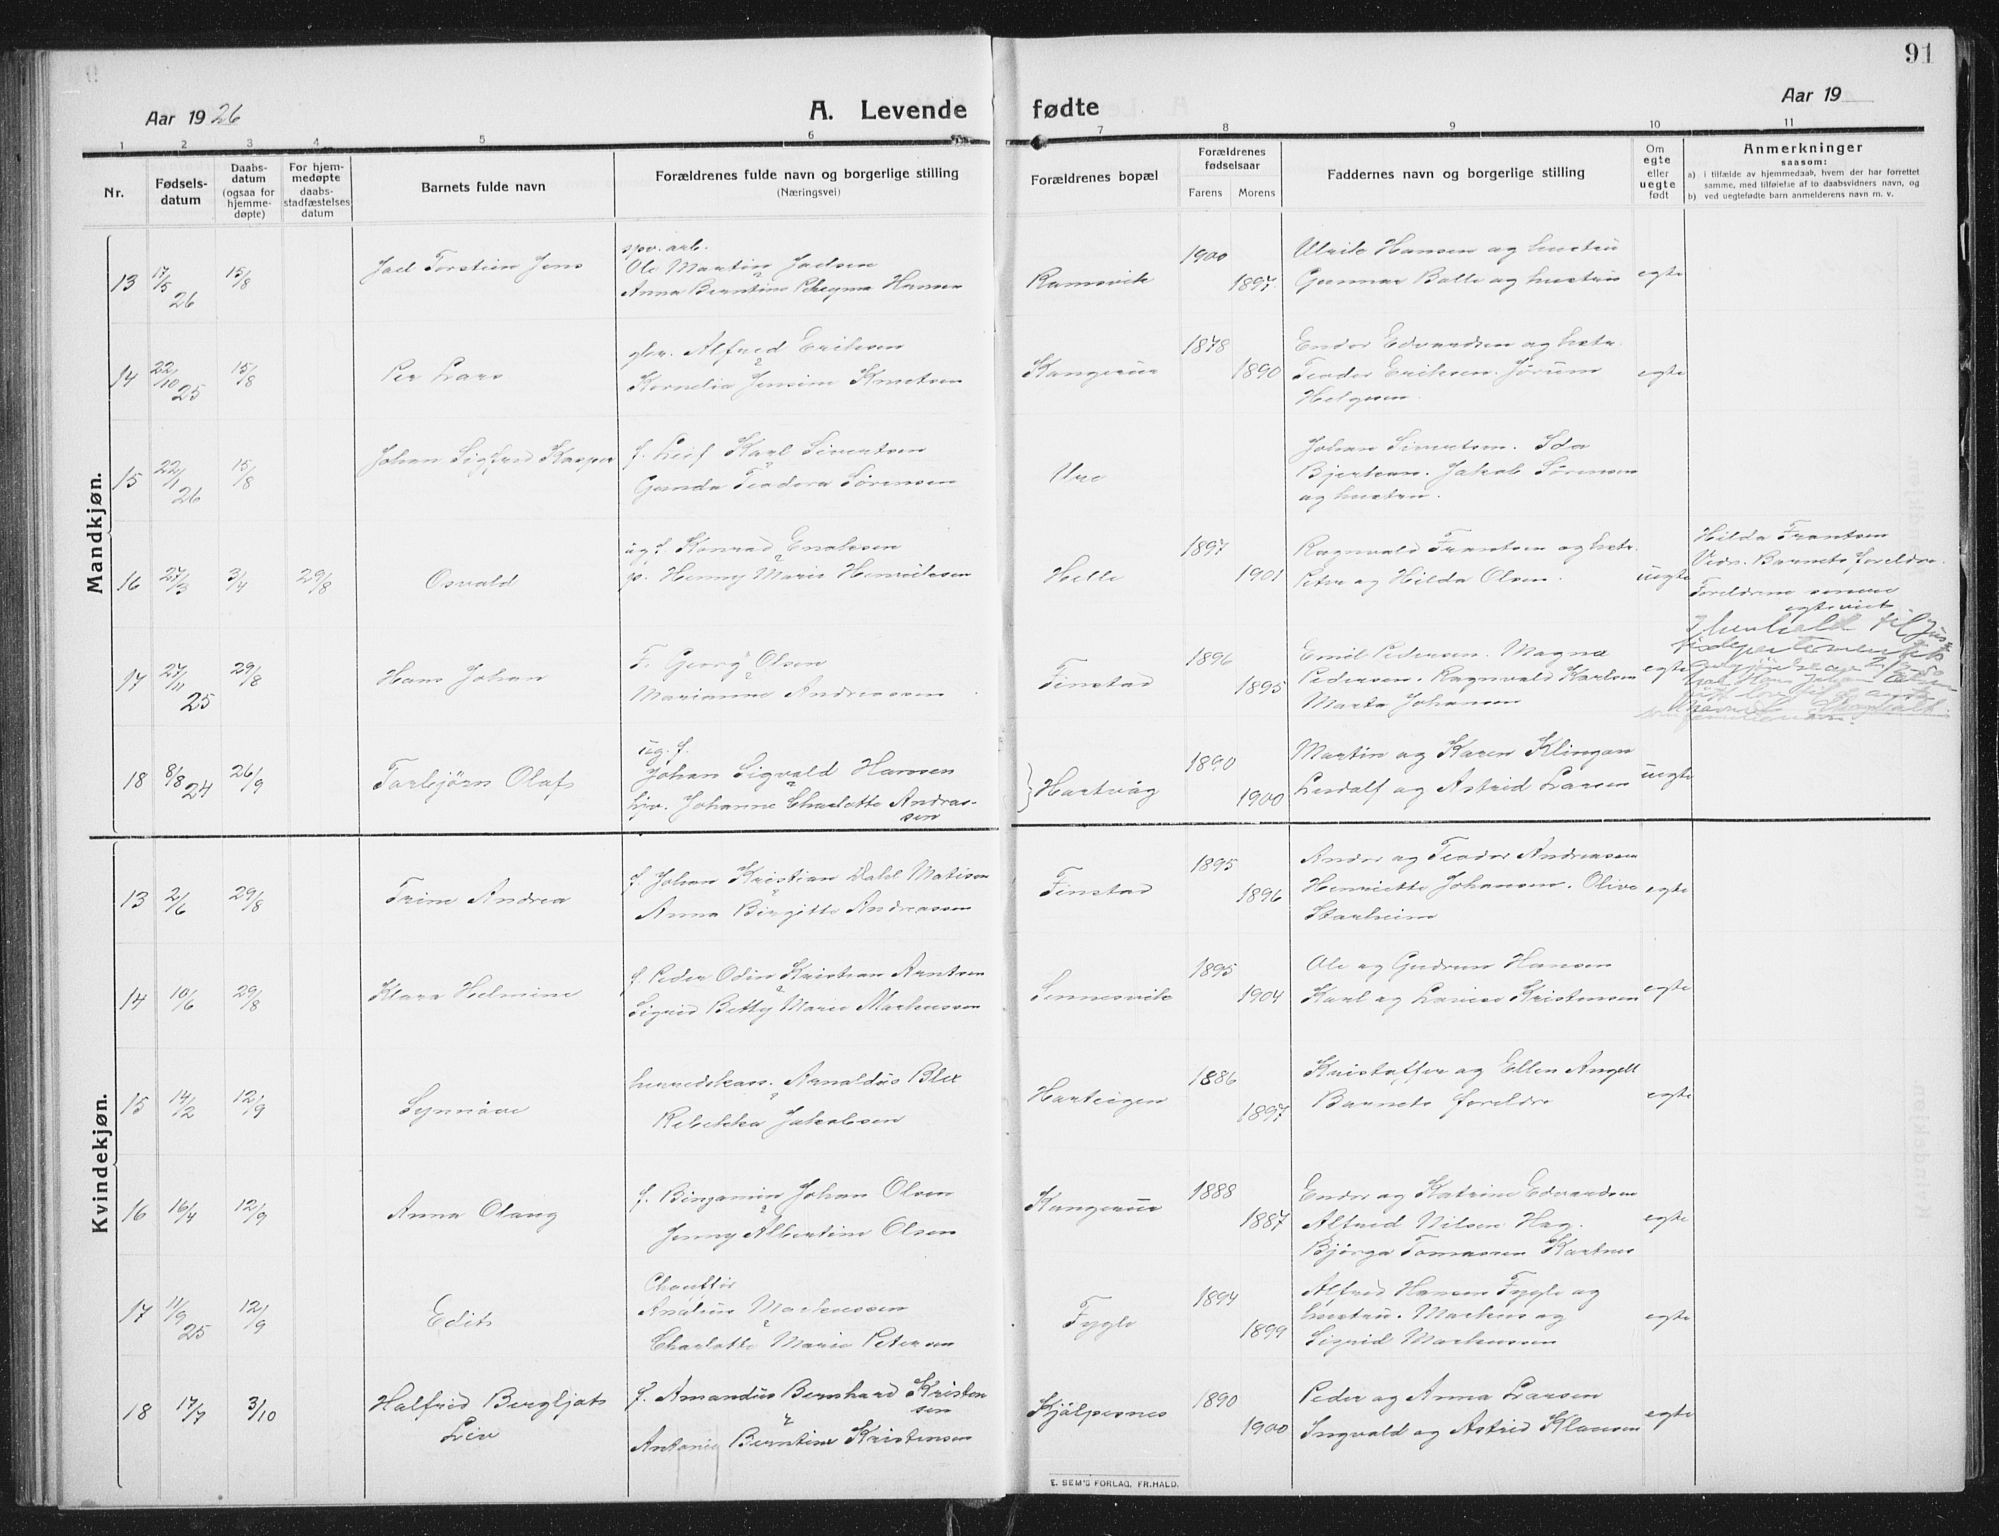 91
Aar 1926
A. Levende fødte
Aar 19
1 2 3 4 5 6 7 8 9 10 11
Nr.
Fødsels-
datum
Daabs-
datum
(ogsaa for
hjemme-
døpte)
For hjem-
medøpte
daabs-
stadfæstelses
datum
Barnets fulde navn
Forældrenes fulde navn og borgerlige stilling
(Næringsvei)
Forældrenes bopæl
Forældrenes
fødselsaar
Farens Morens
Faddernes navn og borgerlige stilling
Om
egte
eller
uegte
født
Anmerkninger
saasom:
a) i tilfælde av hjemmedaab, hvem der har forrettet
samme, med tilføielse af to daabsvidners navn, og
b) ved uegtefødte barn anmelderens navn m. v.
Mandkjøn.
13 17/5 26 15/8 Joel Torstein Jens
spv. arb.
Ole Martin Joelsen
Anna Berntine Hansen
Ramsvik 1900 1897
Ulrik Hansen og hustru
Gunnar Balle og hustru
egte
14 22/10 25 15/8 Per Lars
gbr. Alfred Eriksen
Kornelia Jensine Knutsen
Kangerur 1878 1890
Endor Edvardsen og hstr.
Teodor Eriksen. Jørum
Helgesen.
egte
15 22/1 26 15/8 Johan Sigfred Kasper
f. Leif Karl Sivertsen
Gunda Teodora Sørensen
Ure
Johan Sivertsen. Ida
Bjerkan. Jakob Sørensen
og hustru.
16 27/3 3/4 29/8 Osvald
ug. f. Konrad Enoksen
p. Henny Marie Henriksen
Helle 1897 1901
Ragnvald Frantsen og hstr.
Peter og Hilda Olsen.
uegte
Hilda Frantsen
Vidn. Barnets foreldre.
Foreldrene senere
egteviet
17 27/11 25 29/8 Hans Johan
F. Georg Olsen
Marianne Andreassen
Finstad 1896 1895
Emil Pedersen. Magna
Pedersen. Ragnvald Karlsen
Marta Johansen
egte
I henhold til
18 8/8 24 26/9 Torbjørn Olaf
ug. f.
Johan Sigvald Hansen
Johanne Charlotte Andras-
sen
Hartvåg 1890 1900
Martin og Karen Klingan
Lesdolf og Astrid Larsen
uegte
Kvindekjøn.
13 2/6 29/8 Trine Andrea
f. Johan Kristian Dahl Matisen
Anna Birgitte Andreassen
Finstad 1895 1896
Andor og Teodor Andreassen
Henriette Johansen. Olive
Starheim
egte
14 10/6 29/8 Klara Helmine
f. Peder Odin Kristian Arntsen
Sigrid Betty Marie Markussen
Sennesvik 1895 1904
Ole og Gudrun Hansen
Karl og Lovise Kristensen
egte
15 14/2 12/9 Synnøve
herredskass. Arnoldus Blix
Rebekka Jakobsen
Hartvigen 1886 1897
Kristoffer og Ellen Angell
Barnets foreldre
egte
16 16/4 12/9 Anna Olaug
f. Binjamin Johan Olsen
Jenny Albertine Olsen
Kangerur 1888 1887
Endor og Katrine Edvardsen
Alfred Nilsen Hag.
Bjørga Tomassen Kartnes
egte
17 11/9 25 12/9 Edith
Chauffør
Analius Markussen
Charlotte Marie Petersen
Fygle 1894 1899
Alfred Hansen Fygle og
hustru. Markus og
Sigrid Markussen
egte
18 17/7 3/10 Halfrid Bergljot
Liv
f. Amandus Bernhard Kristen
sen
Antonie Berntine Kristensen
Kjølpesnes 1890 1900
Peder og Anna Larsen
Ingvald og Astrid Klausen
egte
E. SEM'S FORLAG, FR.HALD.